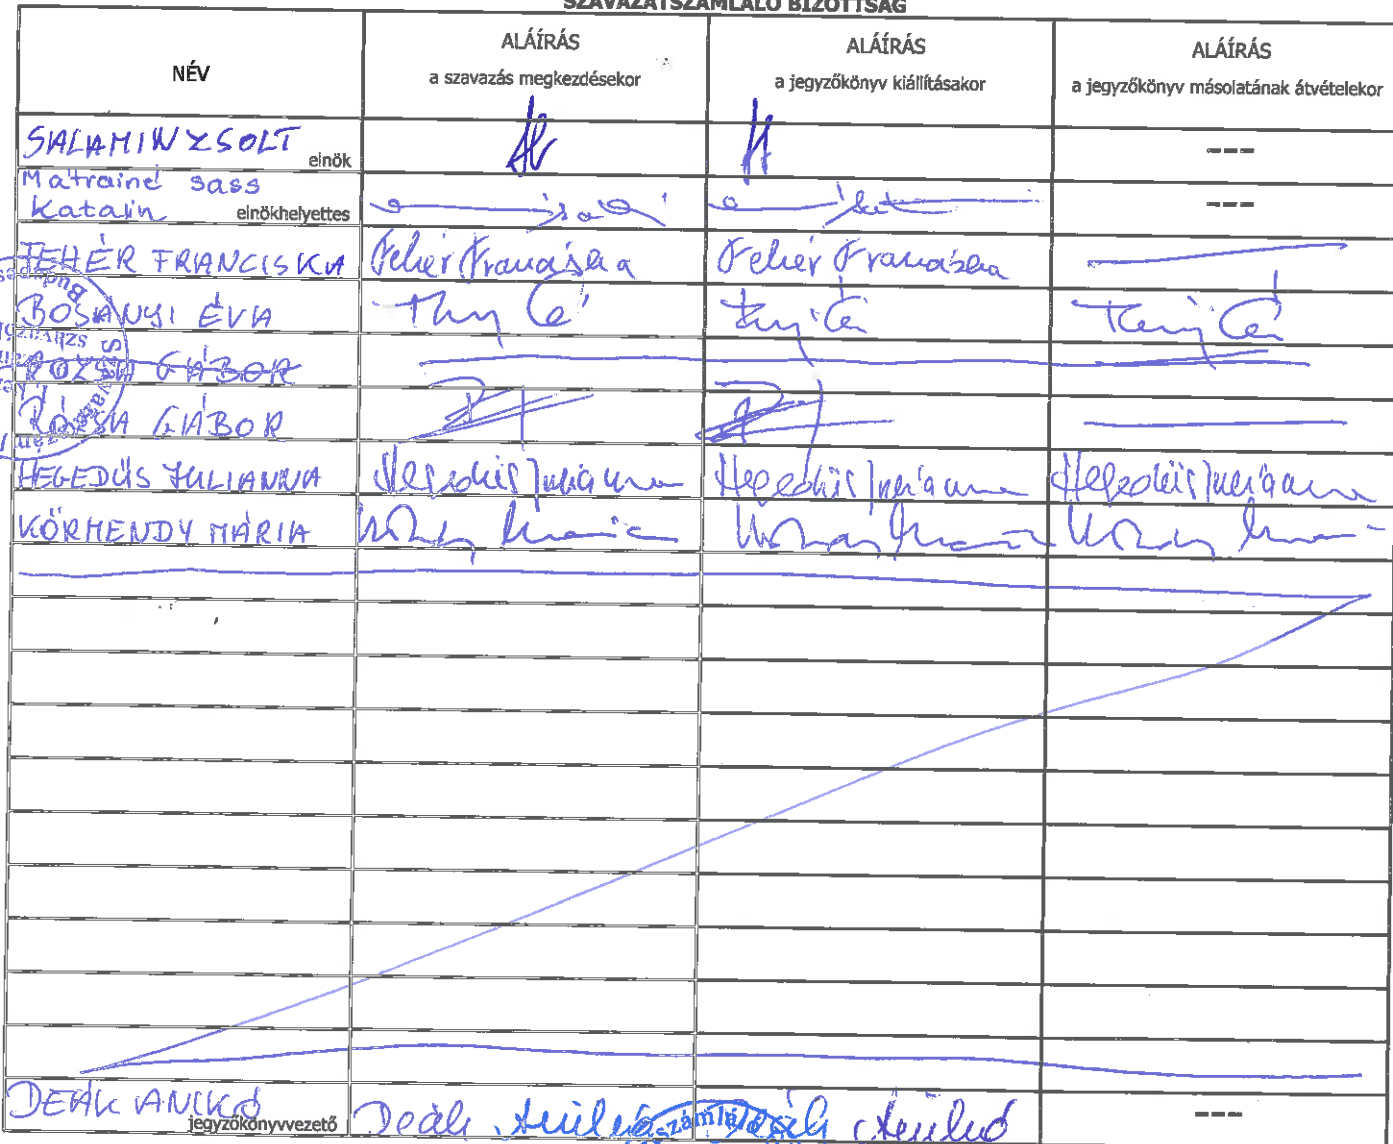 SZAVAZATSZÁMLÁLÓ BIZOTTSÁG
NÉV
ALÁÍRÁS
a szavazás megkezdésekor
ALÁÍRÁS
a jegyzőkönyv kiállításakor
ALÁÍRÁS
a jegyzőkönyv másolatának átvételekor
SALAMIN ZSOLT elnök
---
Mátrainé Sass
Katalin elnökhelyettes
---
FEHÉR FRANCISKA Fehér Franciska Fehér Franciska
BOSÁNYI ÉVA
RÓZSA GÁBOR
RÓZSA GÁBOR
HEGEDŰS JULIANNA Hegedűs Julianna Hegedűs Julianna Hegedűs Julianna
KÖRMENDY MÁRIA
DEÁK ANIKÓ jegyzőkönyvvezető Deák Anikó Deák Anikó
---